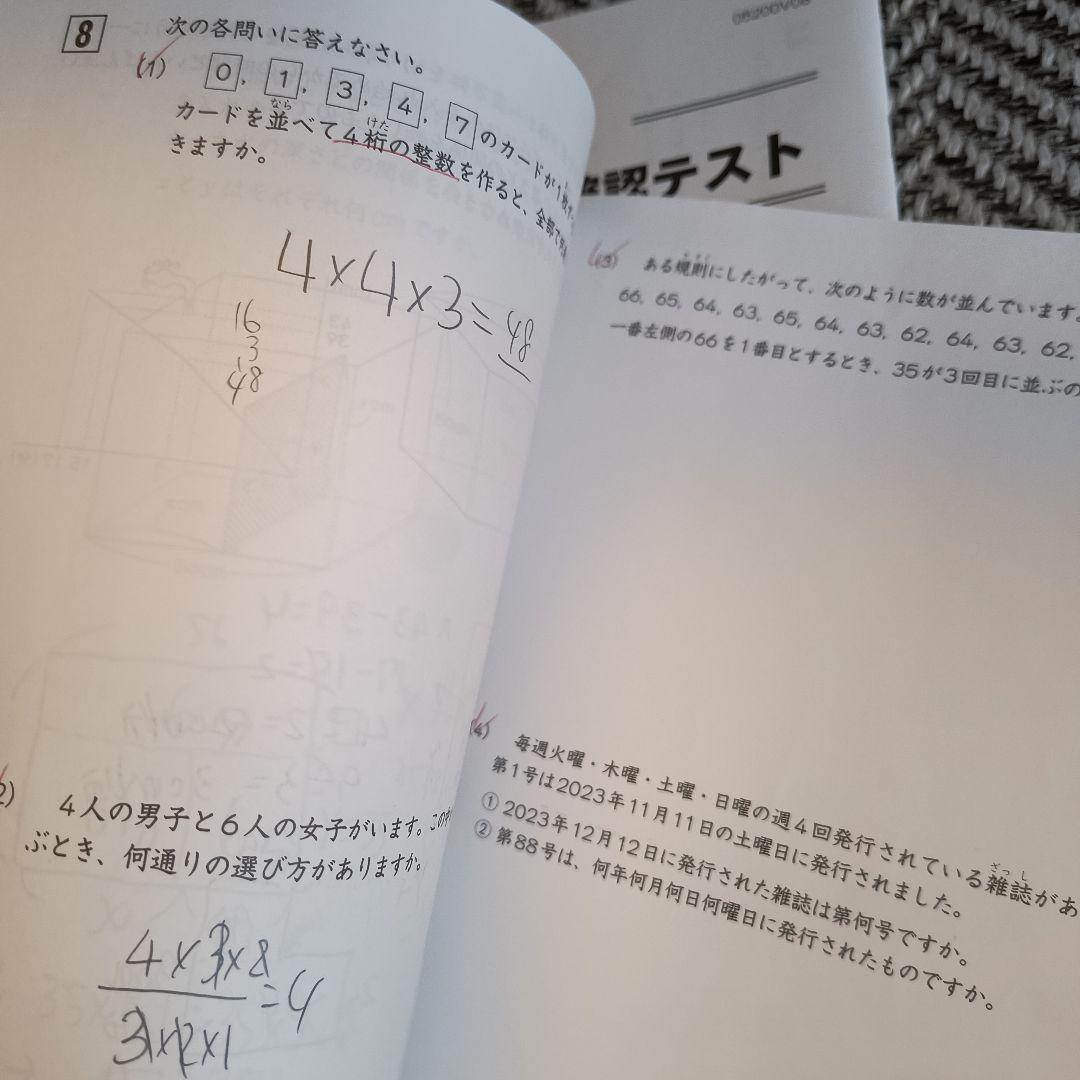 8 次の各問いに答えなさい。
(1) 0, 1, 3, 4, 7のカードが1枚
カードを並べて4桁の整数を作ると、全部で
きますか。
4×4×3=48
16
3
1
48
4人の男子と6人の女子がいます。この
ぶとき、何通りの選び方がありますか。
4×3×
=4
3×2×1
0820DV08
認テスト
(3) ある規則にしたがって、次のように数が並んでいます。
66, 65, 64, 63, 65, 64, 63, 62, 64, 63, 62,
一番左側の66を1番目とするとき、35が3回目に並ぶの
(4) 毎週火曜・木曜・土曜・日曜の週4回発行されている雑誌があ
第1号は2023年11月11日の土曜日に発行されました。
① 2023年12月12日に発行された雑誌は第何号ですか。
② 第88号は、何年何月何日何曜日に発行されたものですか。